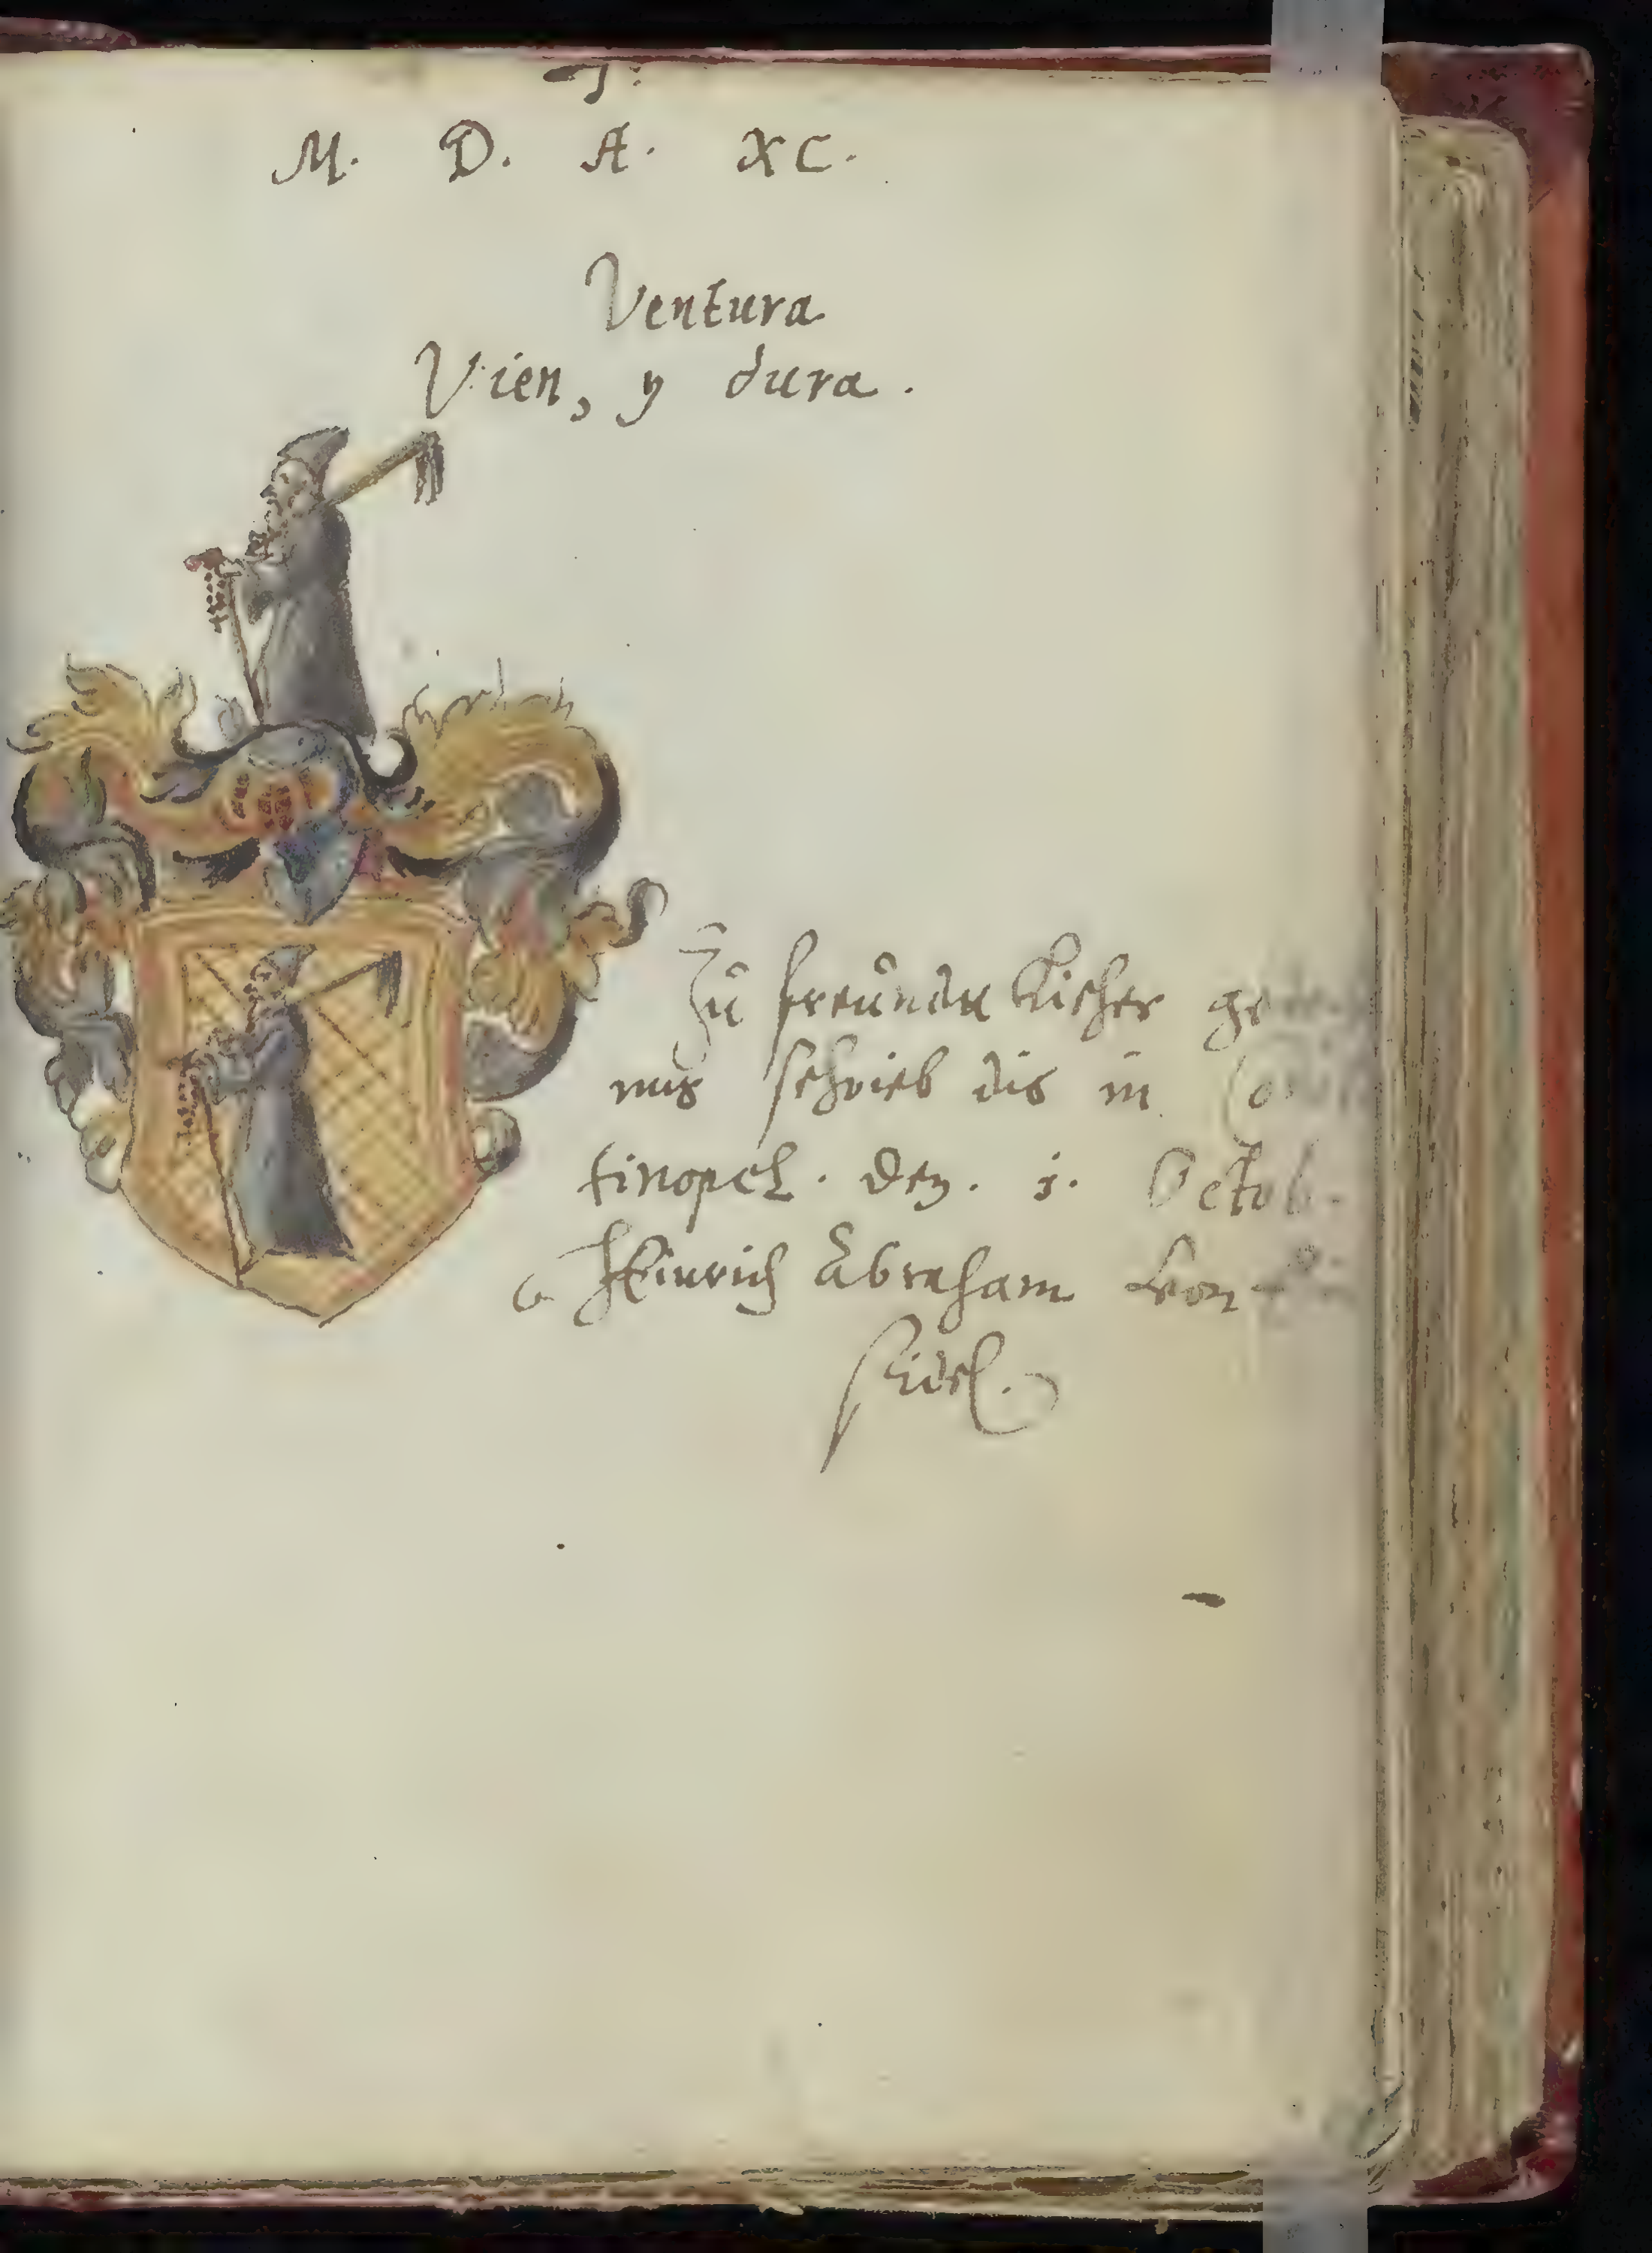 M. D. A. XC.
Ventura
Vien, y dura.
Zů freůndtlicher
nus schrieb dis in
tinopel. den. 1. Octob.
Heinrich Abraham von
seidel.